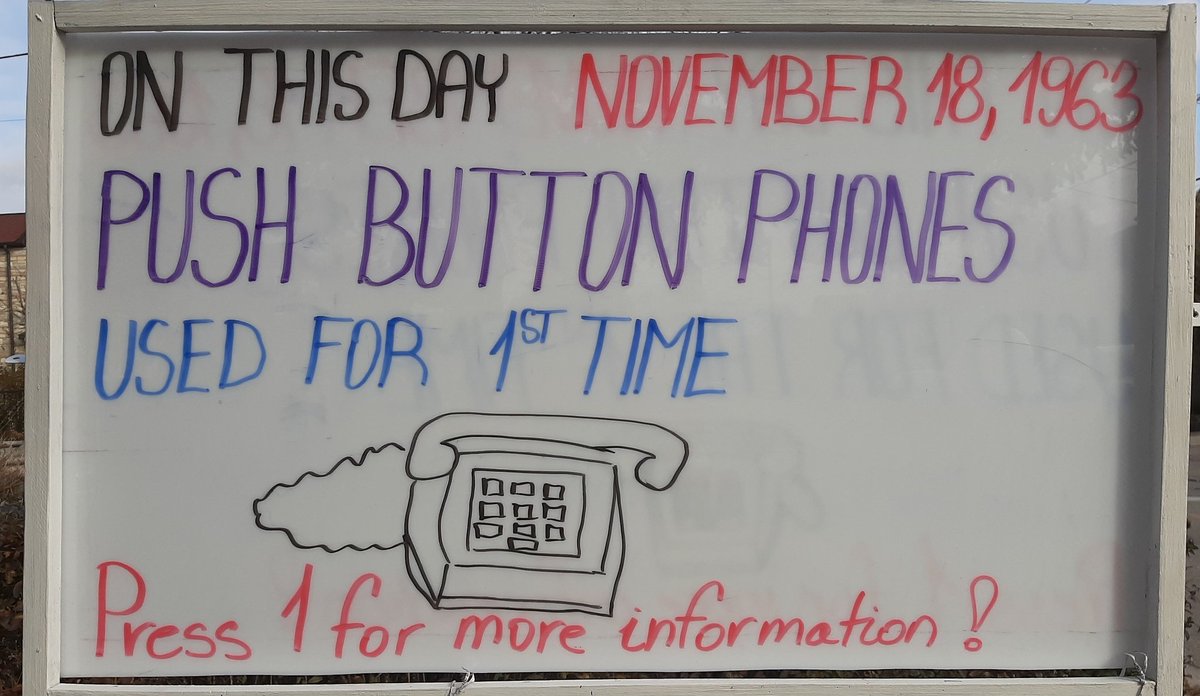 ON THIS DAY NOVEMBER 18, 1963
PUSH BUTTON PHONES
USED FOR 1ST TIME
Press 1 for more information!